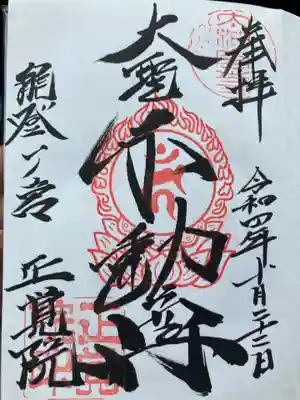 奉拝
令和四年十月二十二日
大聖不動尊
能登一ノ宮
正覚院